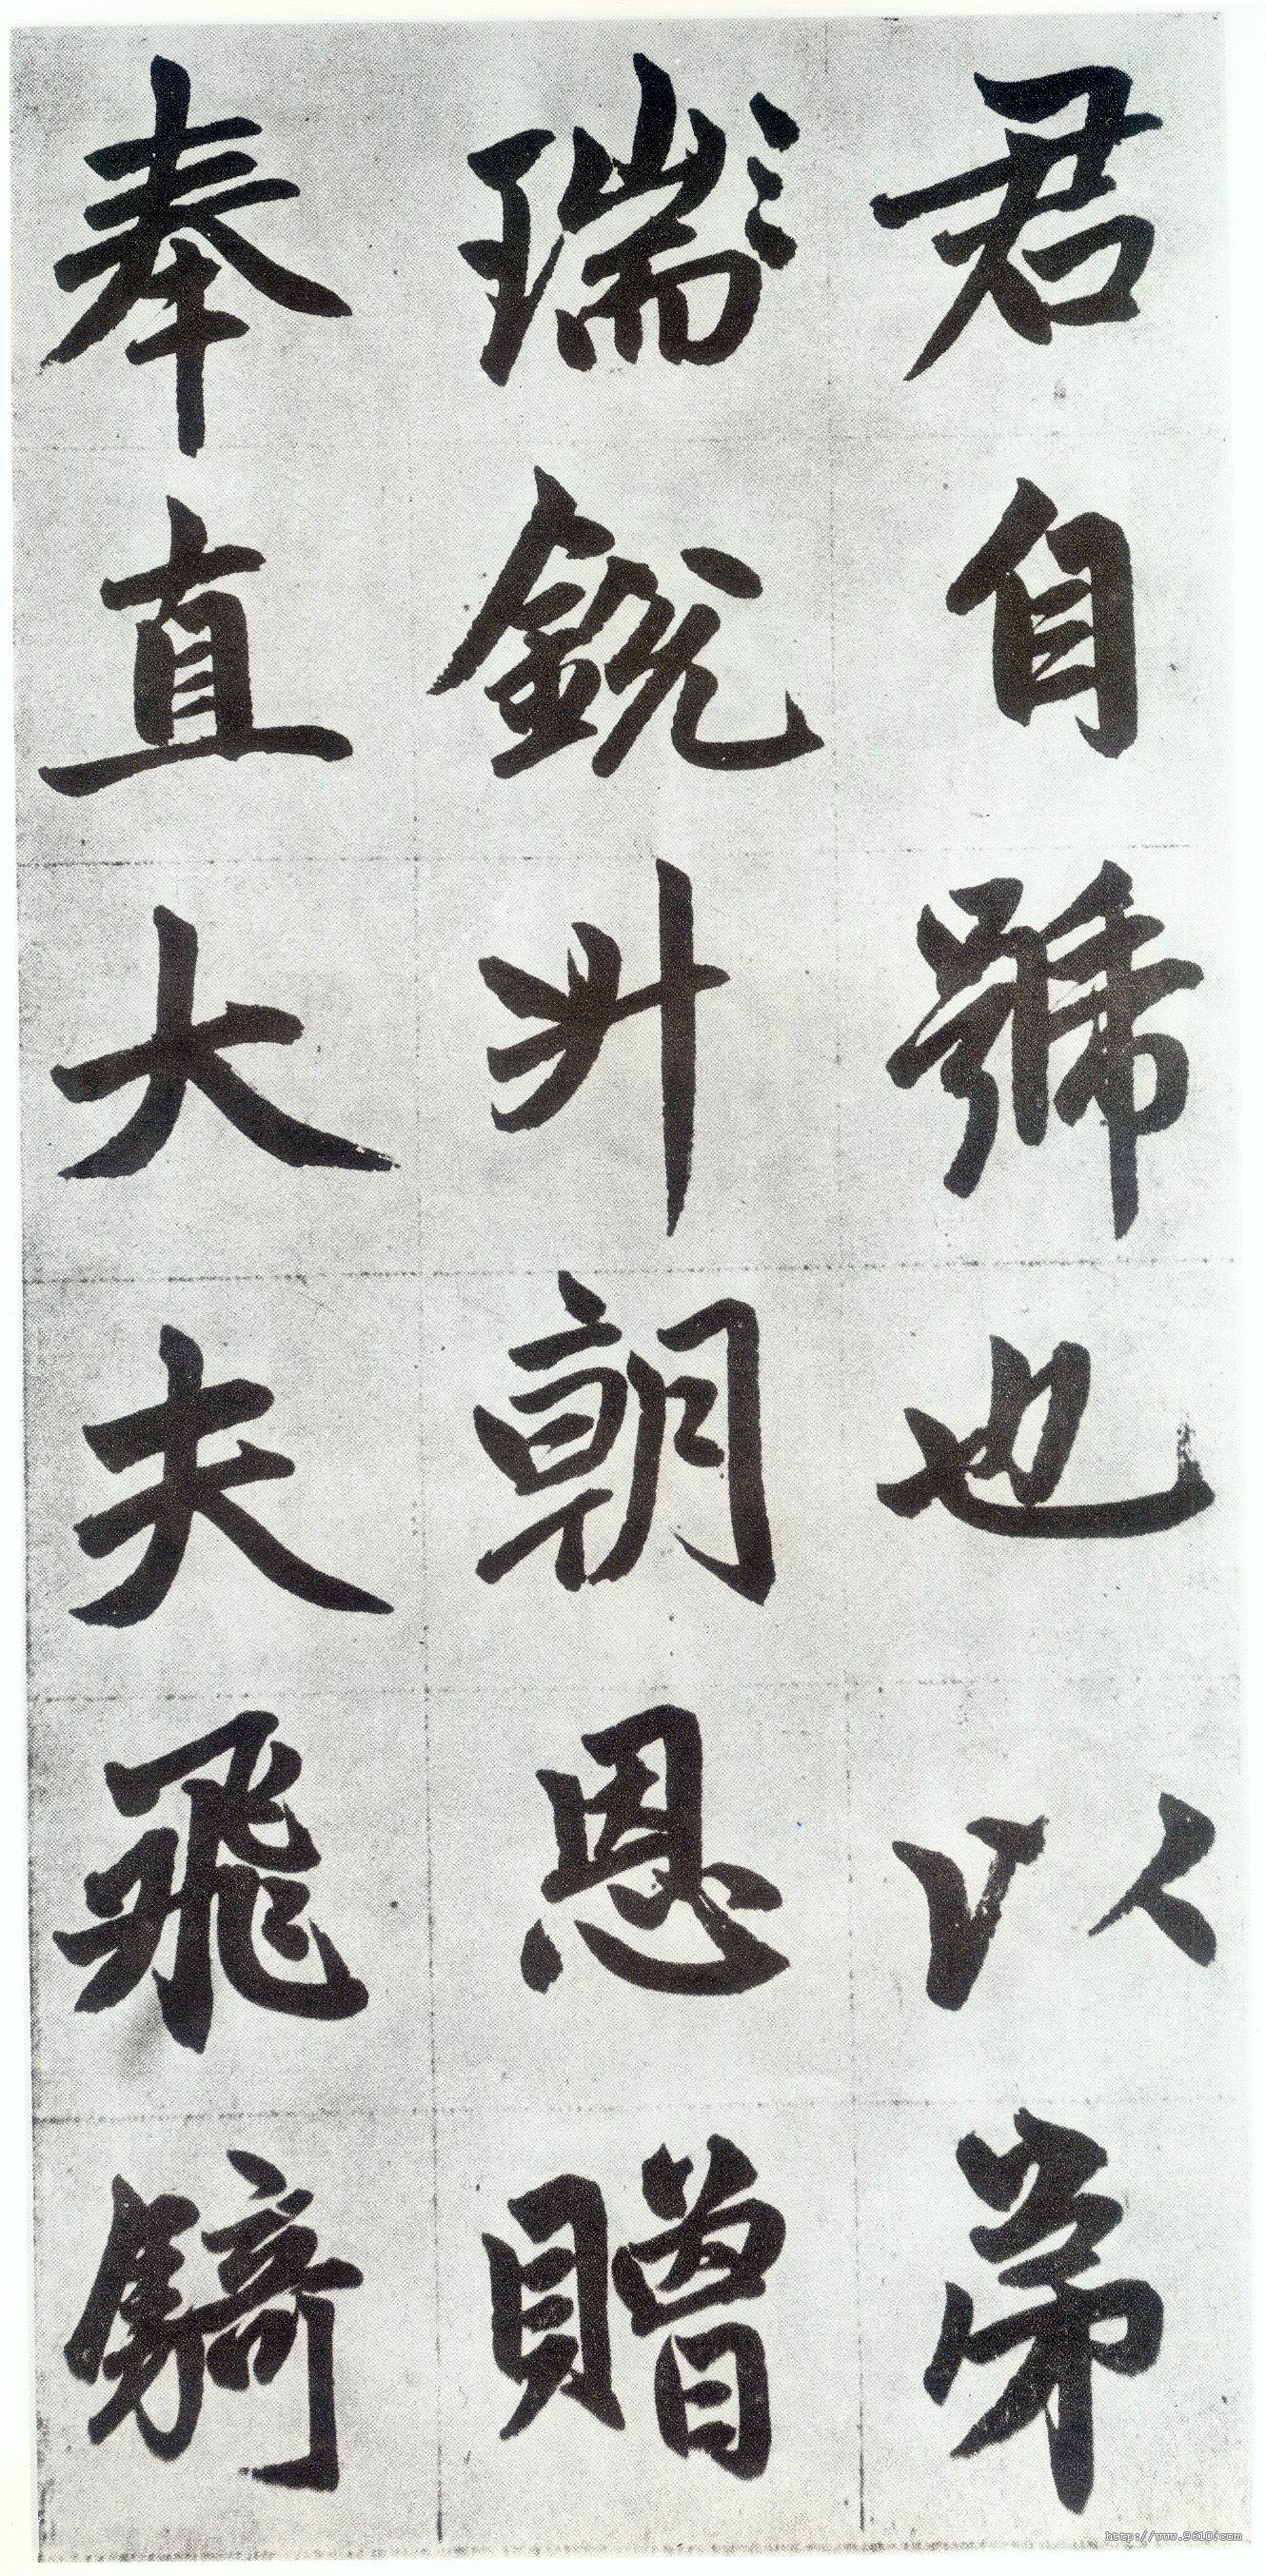 君自號也以弟
瑞銳升朝恩贈
奉直大夫飛騎
http://www.9610.com